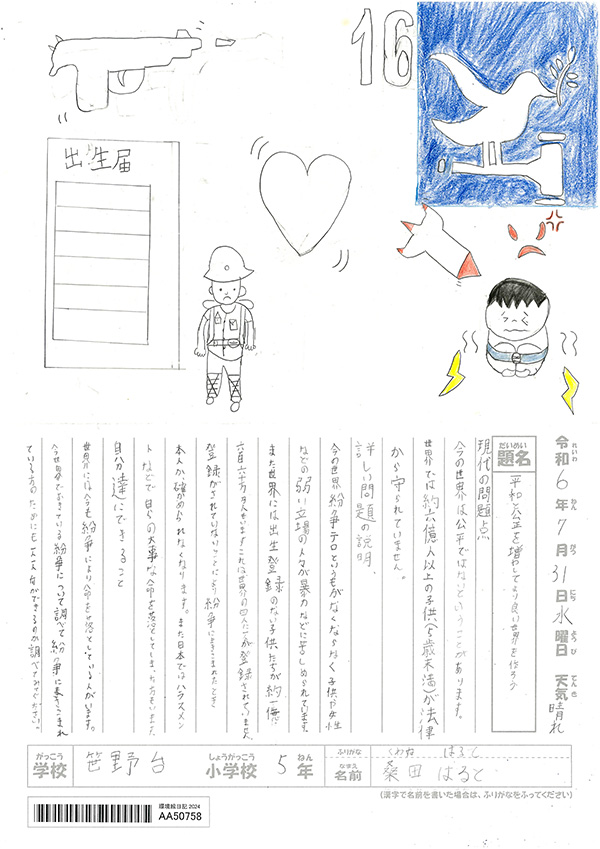 16
出生届
令和6年7月31日水曜日 天気 晴れ
れいわ ねん がつ にち ようび てんき
だいめい
題名
平和と公正を増やしてより良い世界を作ろう
現代の問題点
今の世界は公平ではないということがあります。
世界では約六億人以上の子供(5歳未満)が法律
から守られていません。
詳しい問題の説明、
今の世界紛争テロというものがなくならなく子供や女性
などの弱い立場の人々が暴力などに苦しめられています。
また世界には出生登録のない子供たちが約一億
六百六十万人もいます。これは世界の四人に一人が登録されていません
登録がされていないことにより紛争にまきこまれたとき
本人か確かめられなくなります。また日本ではハラスメン
トなどで自らの大事な命を落としてしまった方もいます。
自分達にできること
世界には今も紛争により命を落としている人がいます。
今世界でおきている紛争について調べて紛争に巻きこまれ
ている方のためにも どんな ができるのか調べてみてください。
がっこう
学校
笹野台
しょうがっこう
小学校
5
ねん
年
ふりがな
くわた はると
なまえ
名前
桑田 はると
(漢字で名前を書いた場合は、ふりがなをふってください)
環境絵日記 2024
AA50758